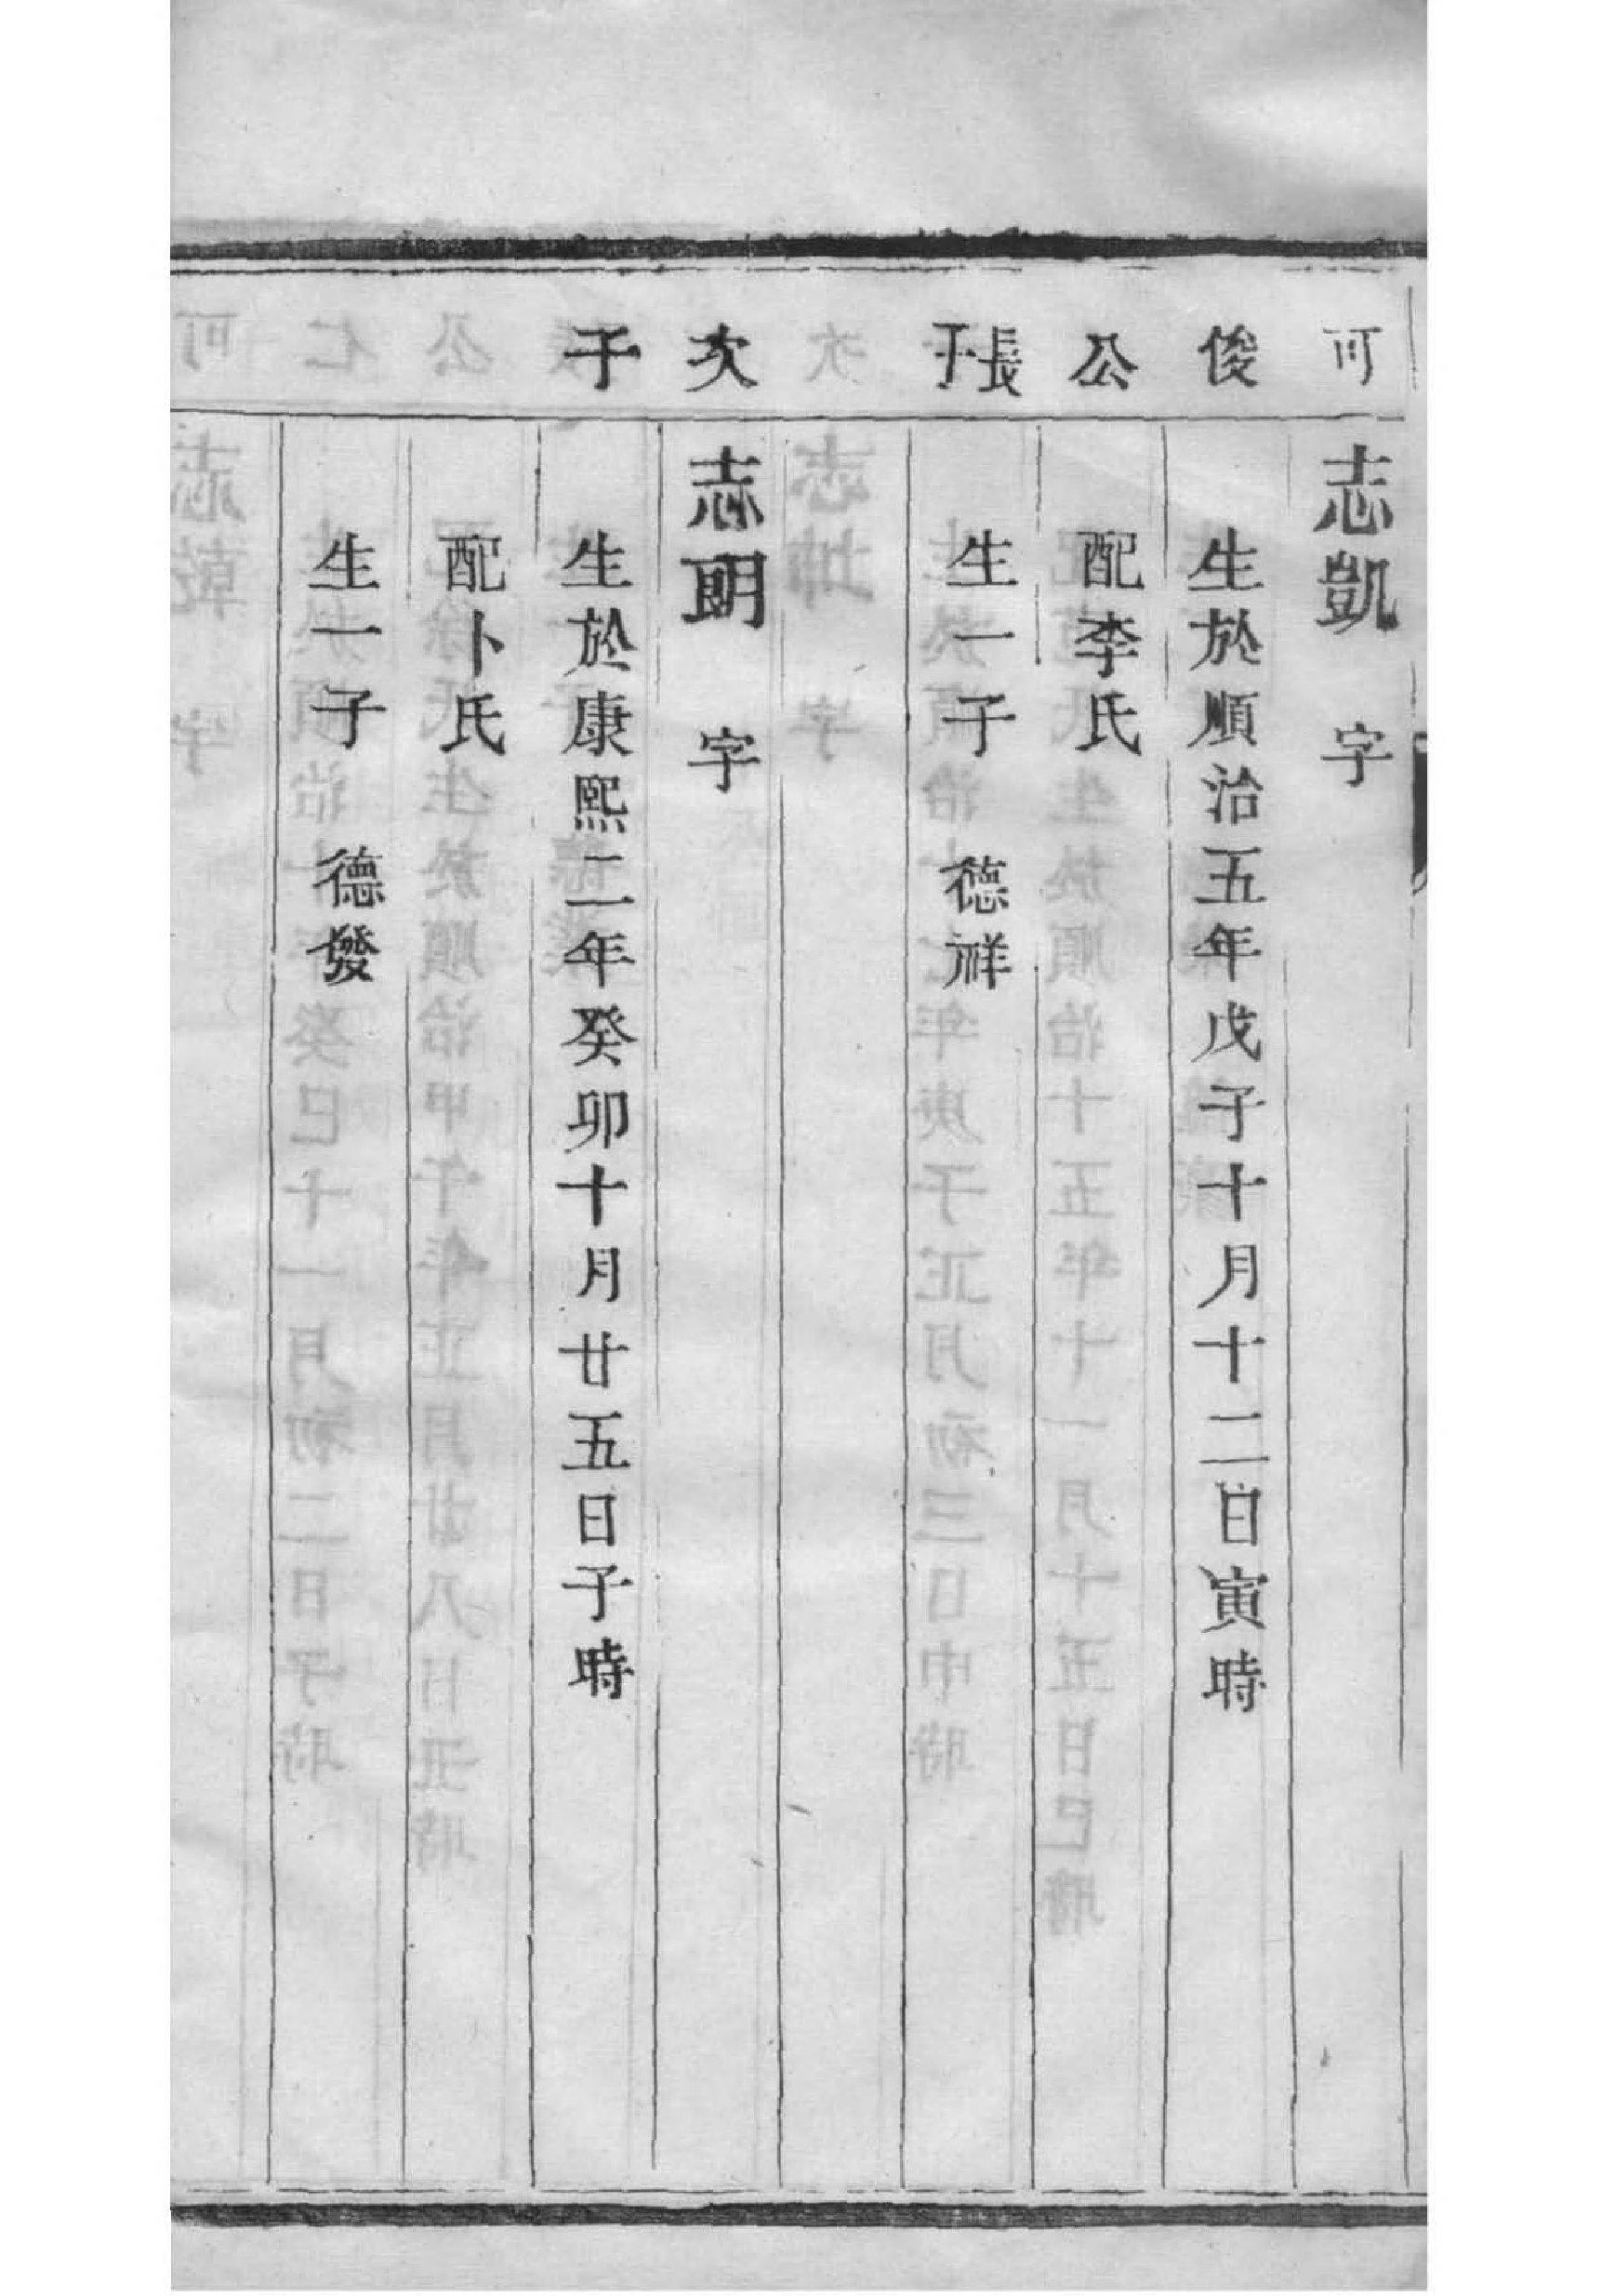 可俊公長子
志凱 字
生於順治五年戊子十月十二日寅時
配李氏
生一子 德祥
次子
志朗 字
生於康熙二年癸卯十月廿五日子時
配卜氏
生一子 德發